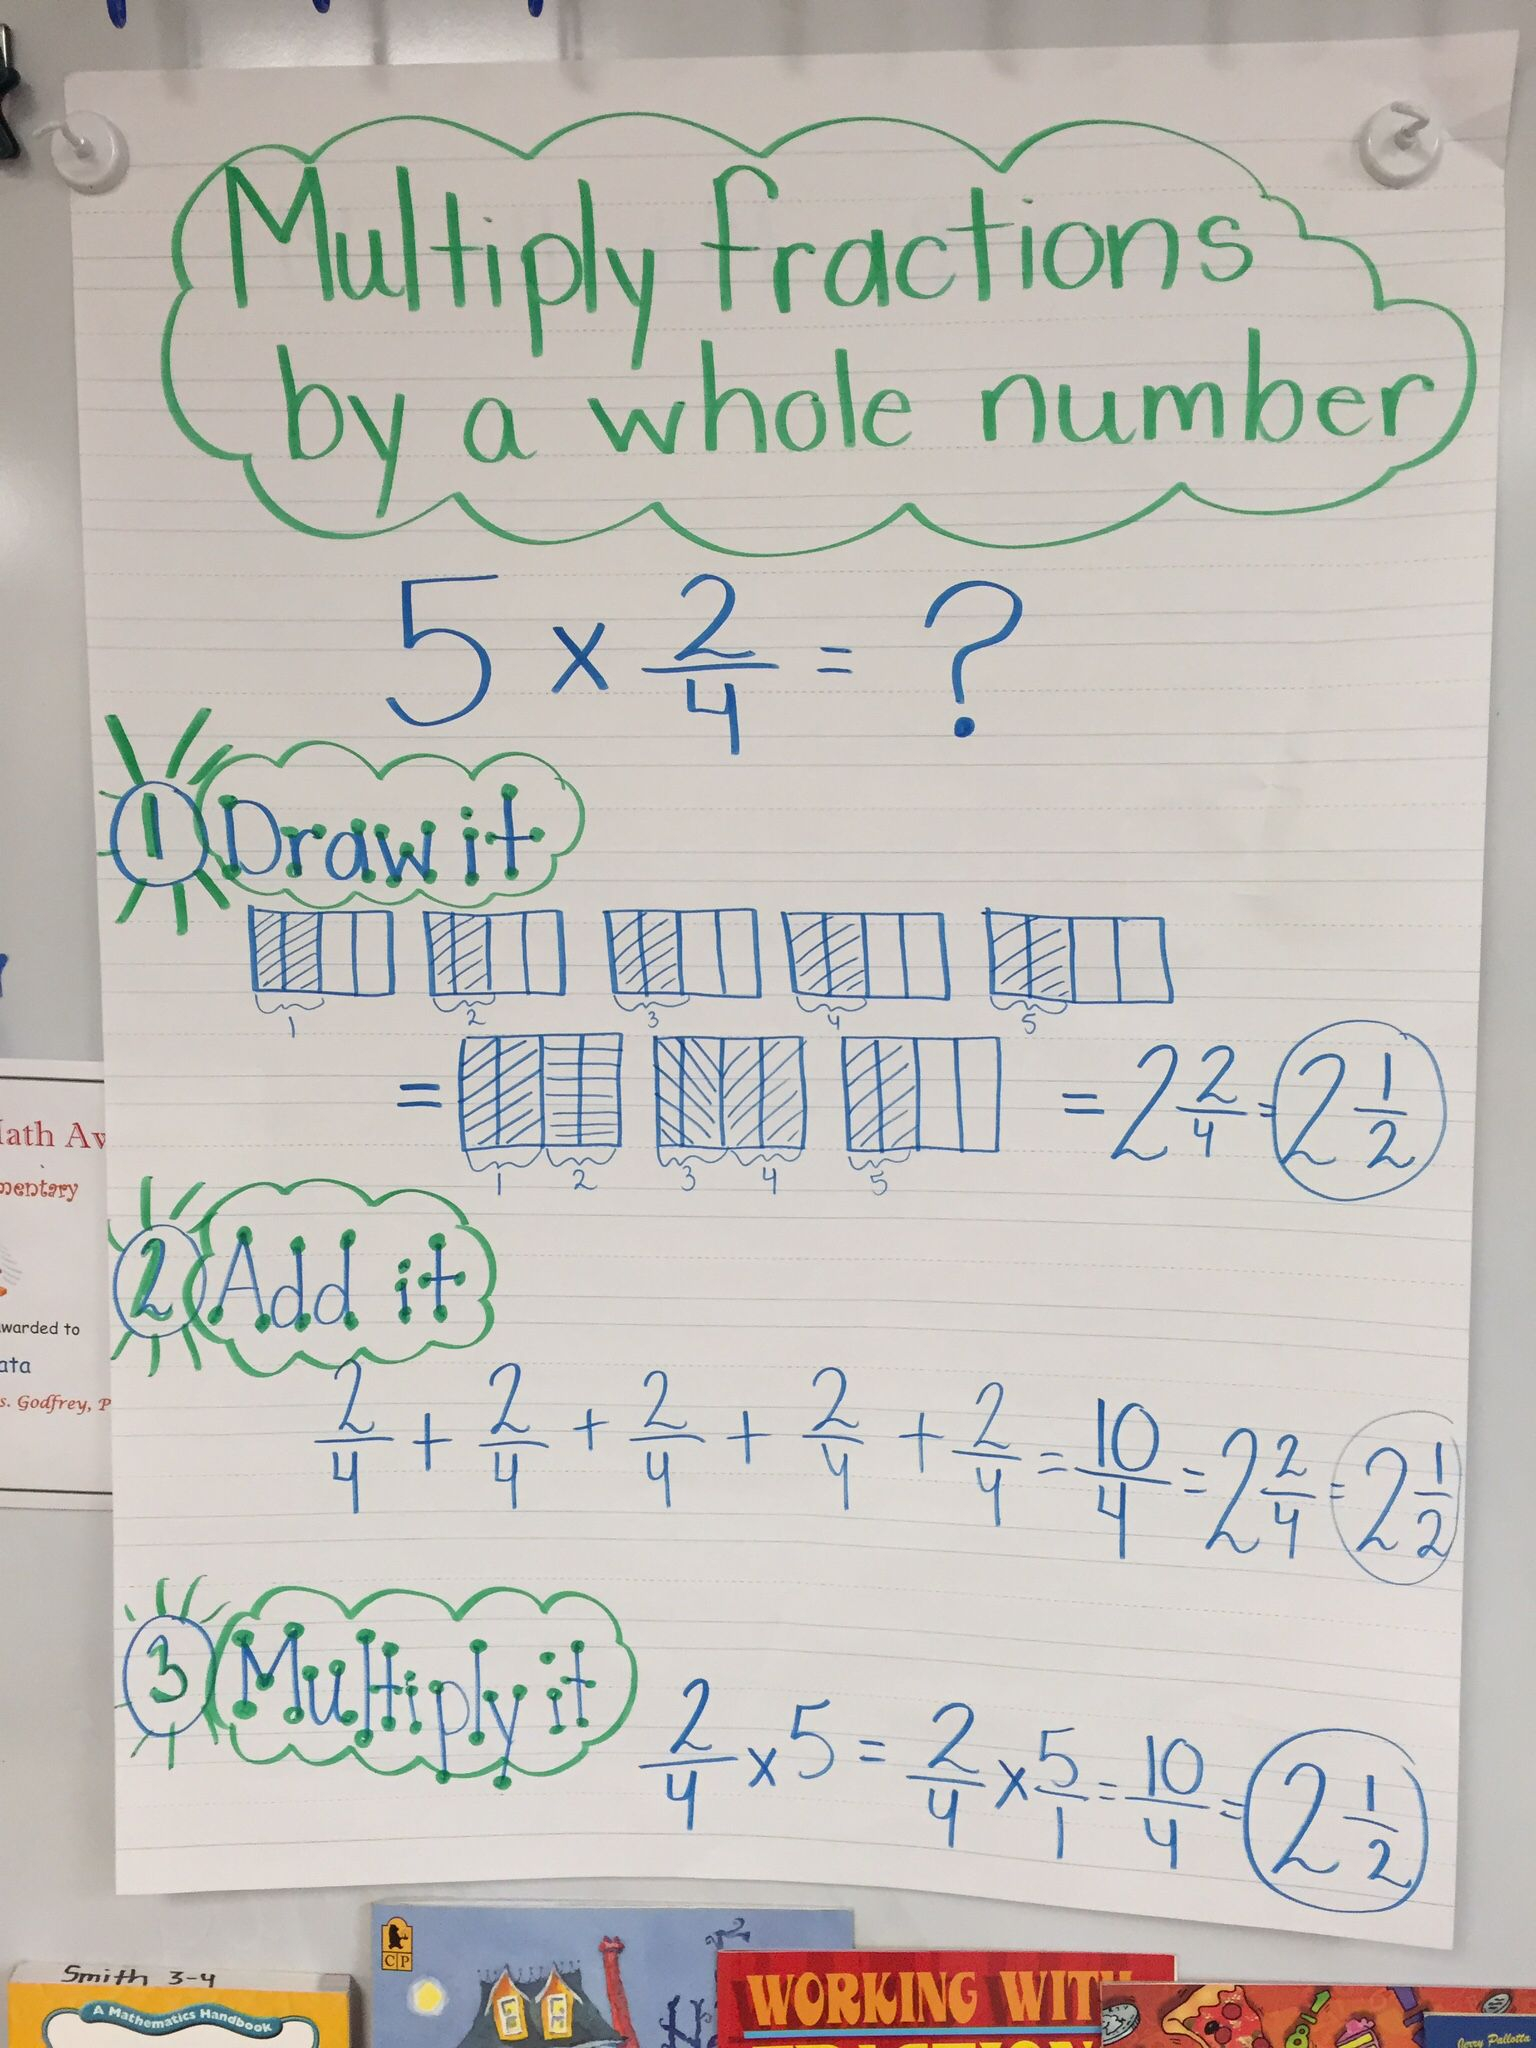 Multiply fractions
by a whole number
5 x 2/4 = ?
1 Draw it
1 2 3 4 5
= = 2 2/4 = 2 1/2
1 2 3 4 5
2 Add it
2/4 + 2/4 + 2/4 + 2/4 + 2/4 = 10/4 = 2 2/4 = 2 1/2
3 Multiply it
2/4 x 5 = 2/4 x 5/1 = 10/4 = 2 1/2
ath Aw
mentary
warded to
ata
s. Godfrey, P
Smith 3-4
A Mathematics Handbook
CP
WORKING WITH
FRACTION
Jerry Pallotta